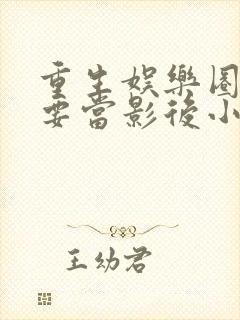 重生娛樂圈
要當影後小
王幼君